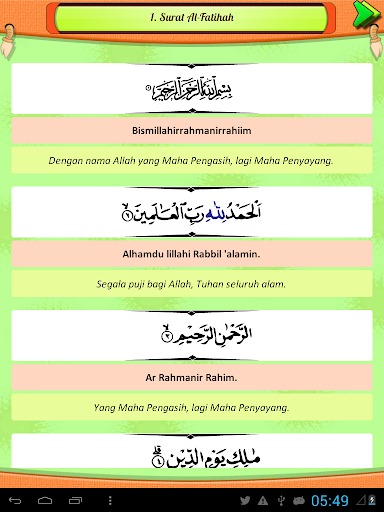 1. Surat Al-Fatihah
بِسْمِ اللَّهِ الرَّحْمَٰنِ الرَّحِيمِ
Bismillahirrahmanirrahiim
Dengan nama Allah yang Maha Pengasih, lagi Maha Penyayang.
اَلْحَمْدُ لِلّٰهِ رَبِّ الْعٰلَمِيْنَ
Alhamdu lillahi Rabbil 'alamin.
Segala puji bagi Allah, Tuhan seluruh alam.
الرَّحْمٰنِ الرَّحِيْمِ
Ar Rahmanir Rahim.
Yang Maha Pengasih, lagi Maha Penyayang.
مٰلِكِ يَوْمِ الدِّيْنِ
05:49